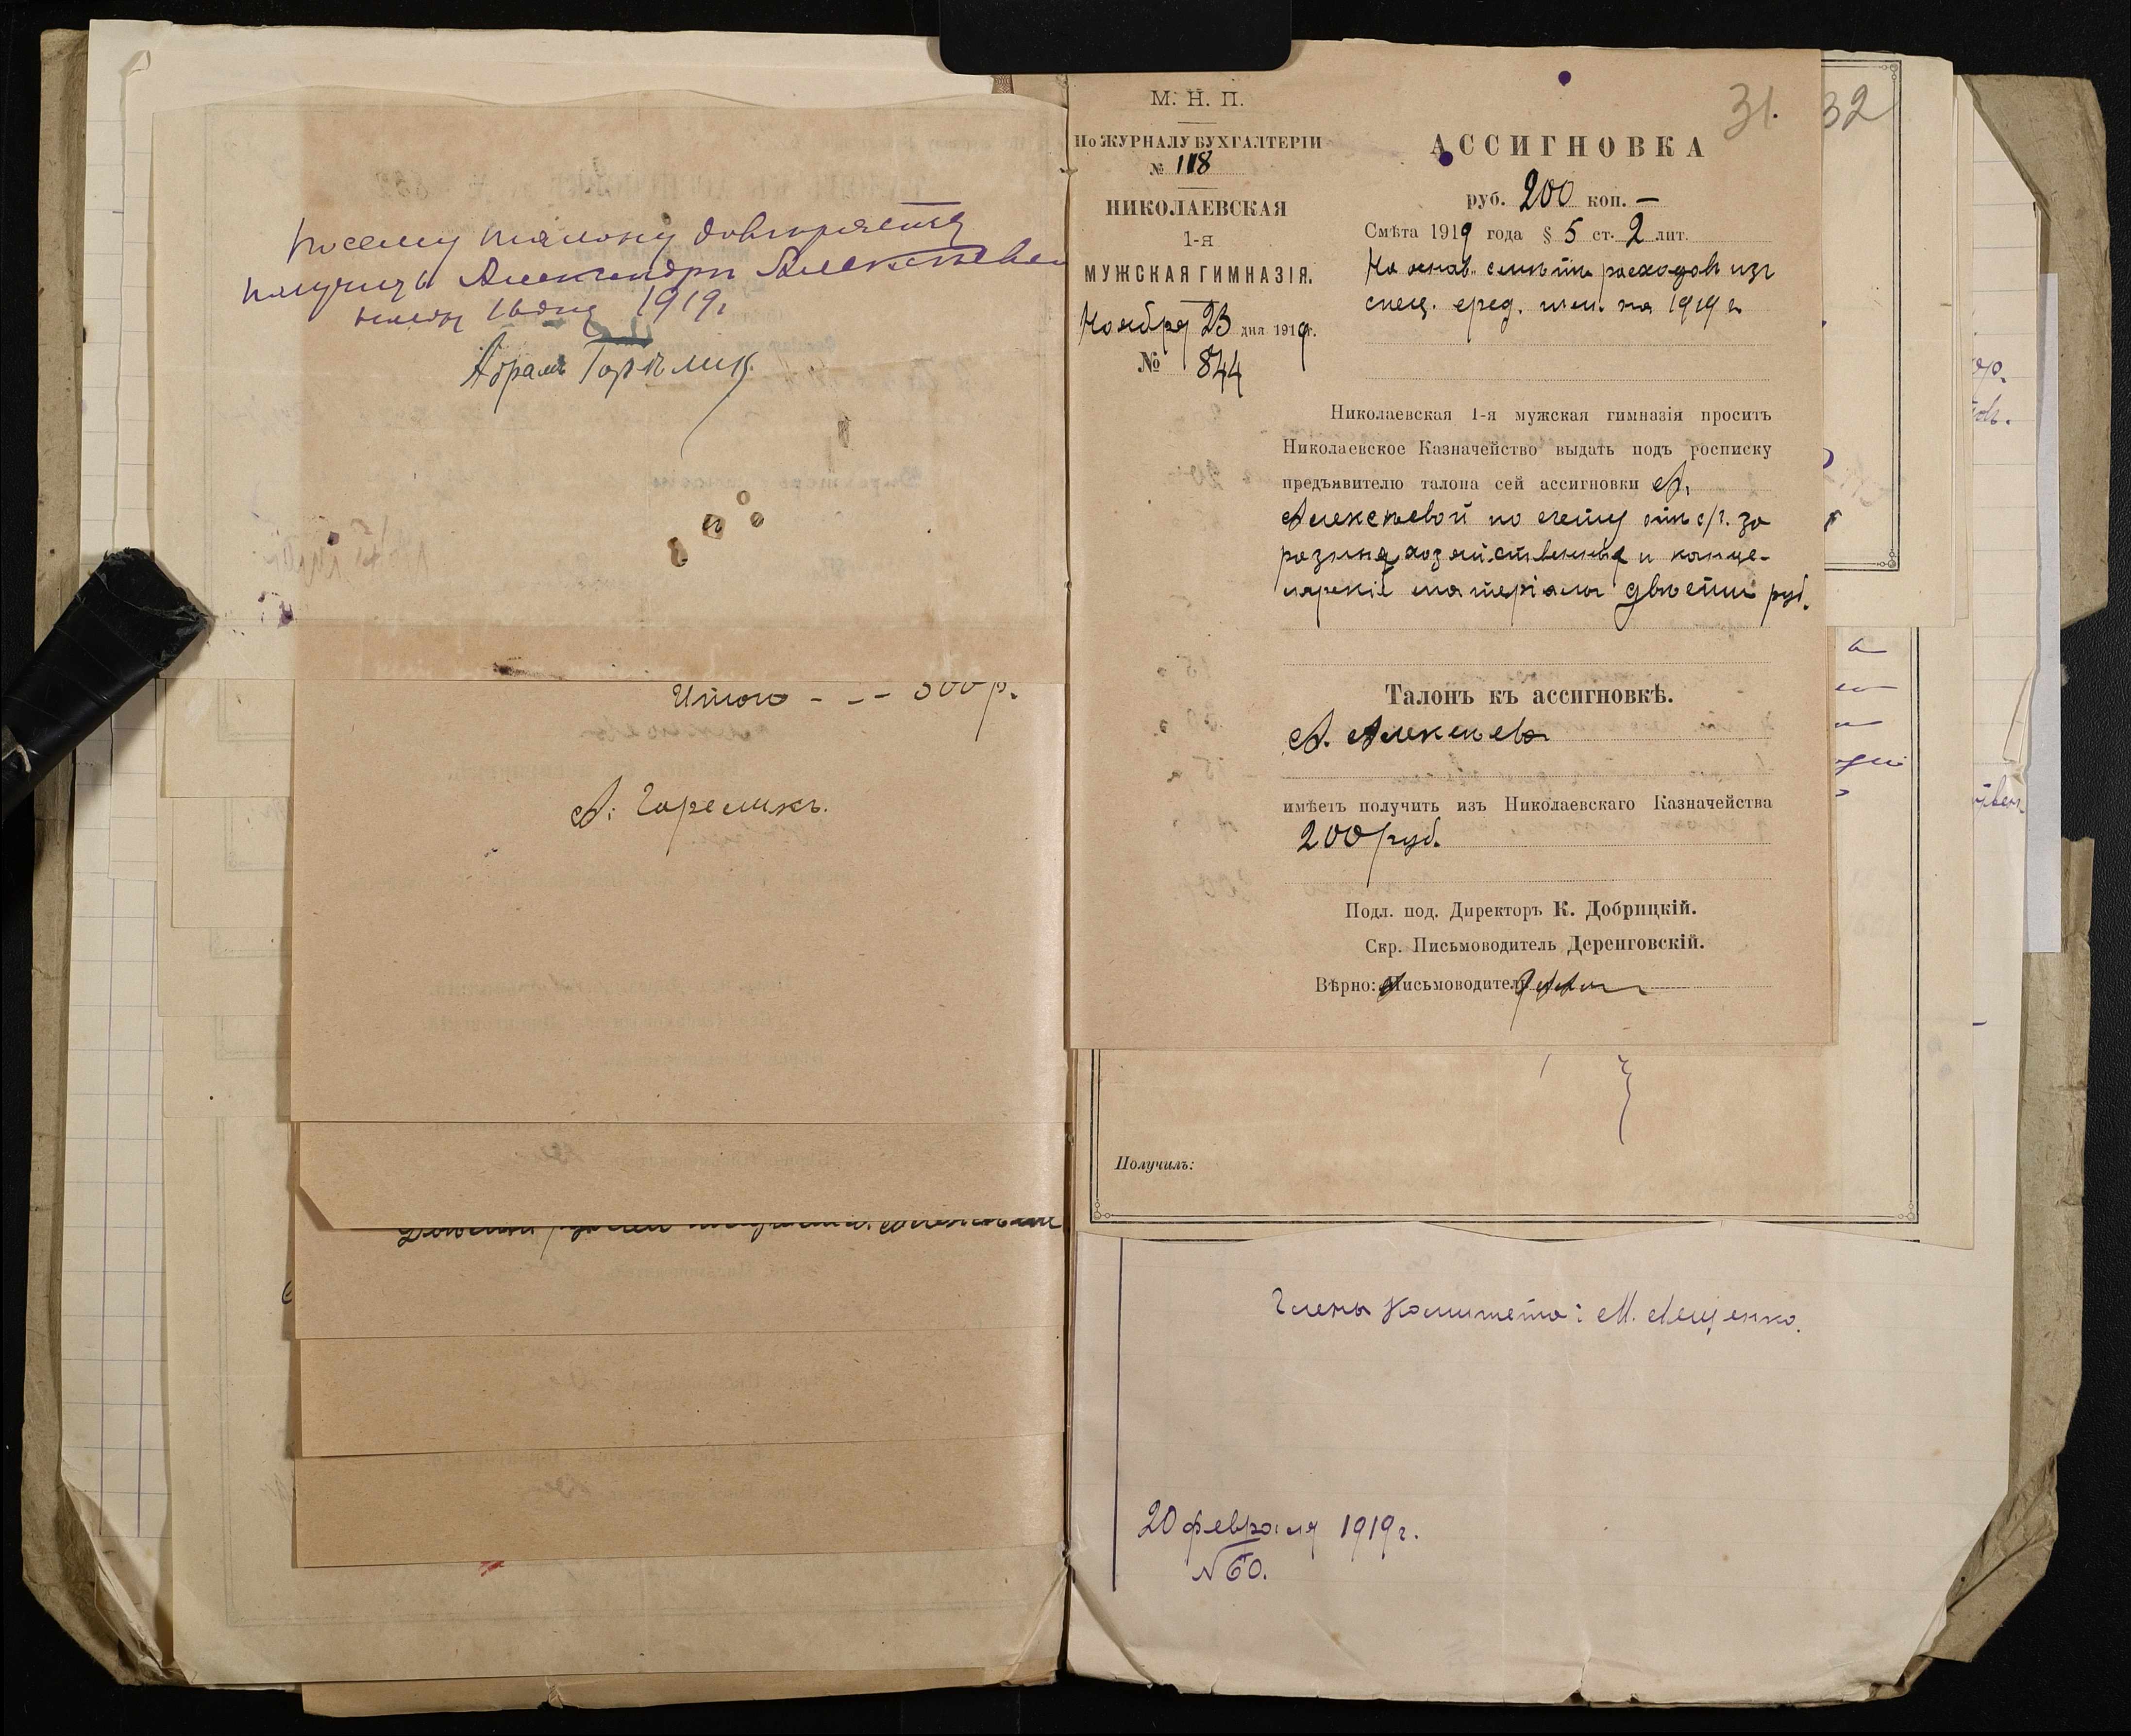 посему талону доверяется
получить Александръ Алексеевой
1919г
Абрамъ Горѣликъ.
Итого - - - 300 р.
А. Горелик.
М. Н. П.
По ЖУРНАЛУ БУХГАЛТЕРІИ
№ 118
НИКОЛАЕВСКАЯ
1-я
МУЖСКАЯ ГИМНАЗІЯ.
Ноября 23 дня 1919г.
№ 844
31.
32
АССИГНОВКА
руб. 200 коп. —
Смѣта 1919 года § 5 ст. 2 лит.
На основ. смѣты расходовъ изъ
спец. сред. гим. на 1919 г.
Николаевская 1-я мужская гимназія проситъ
Николаевское Казначейство выдать подъ росписку
предъявителю талона сей ассигновки А.
Алексѣевой по счету отъ с/г. за
разные хозяйственные и канце-
лярскіе матеріалы двѣсти руб.
Талонъ къ ассигновкѣ.
А. Алексѣева
имѣетъ получить изъ Николаевскаго Казначейства
200 руб.
Подл. под. Директоръ К. Добрицкій.
Скр. Письмоводитель Деренговскій.
Вѣрно: Письмоводитель
Получилъ:
Члены Комитета: М. Лещенко.
20 февраля 1919 г.
№ 60.